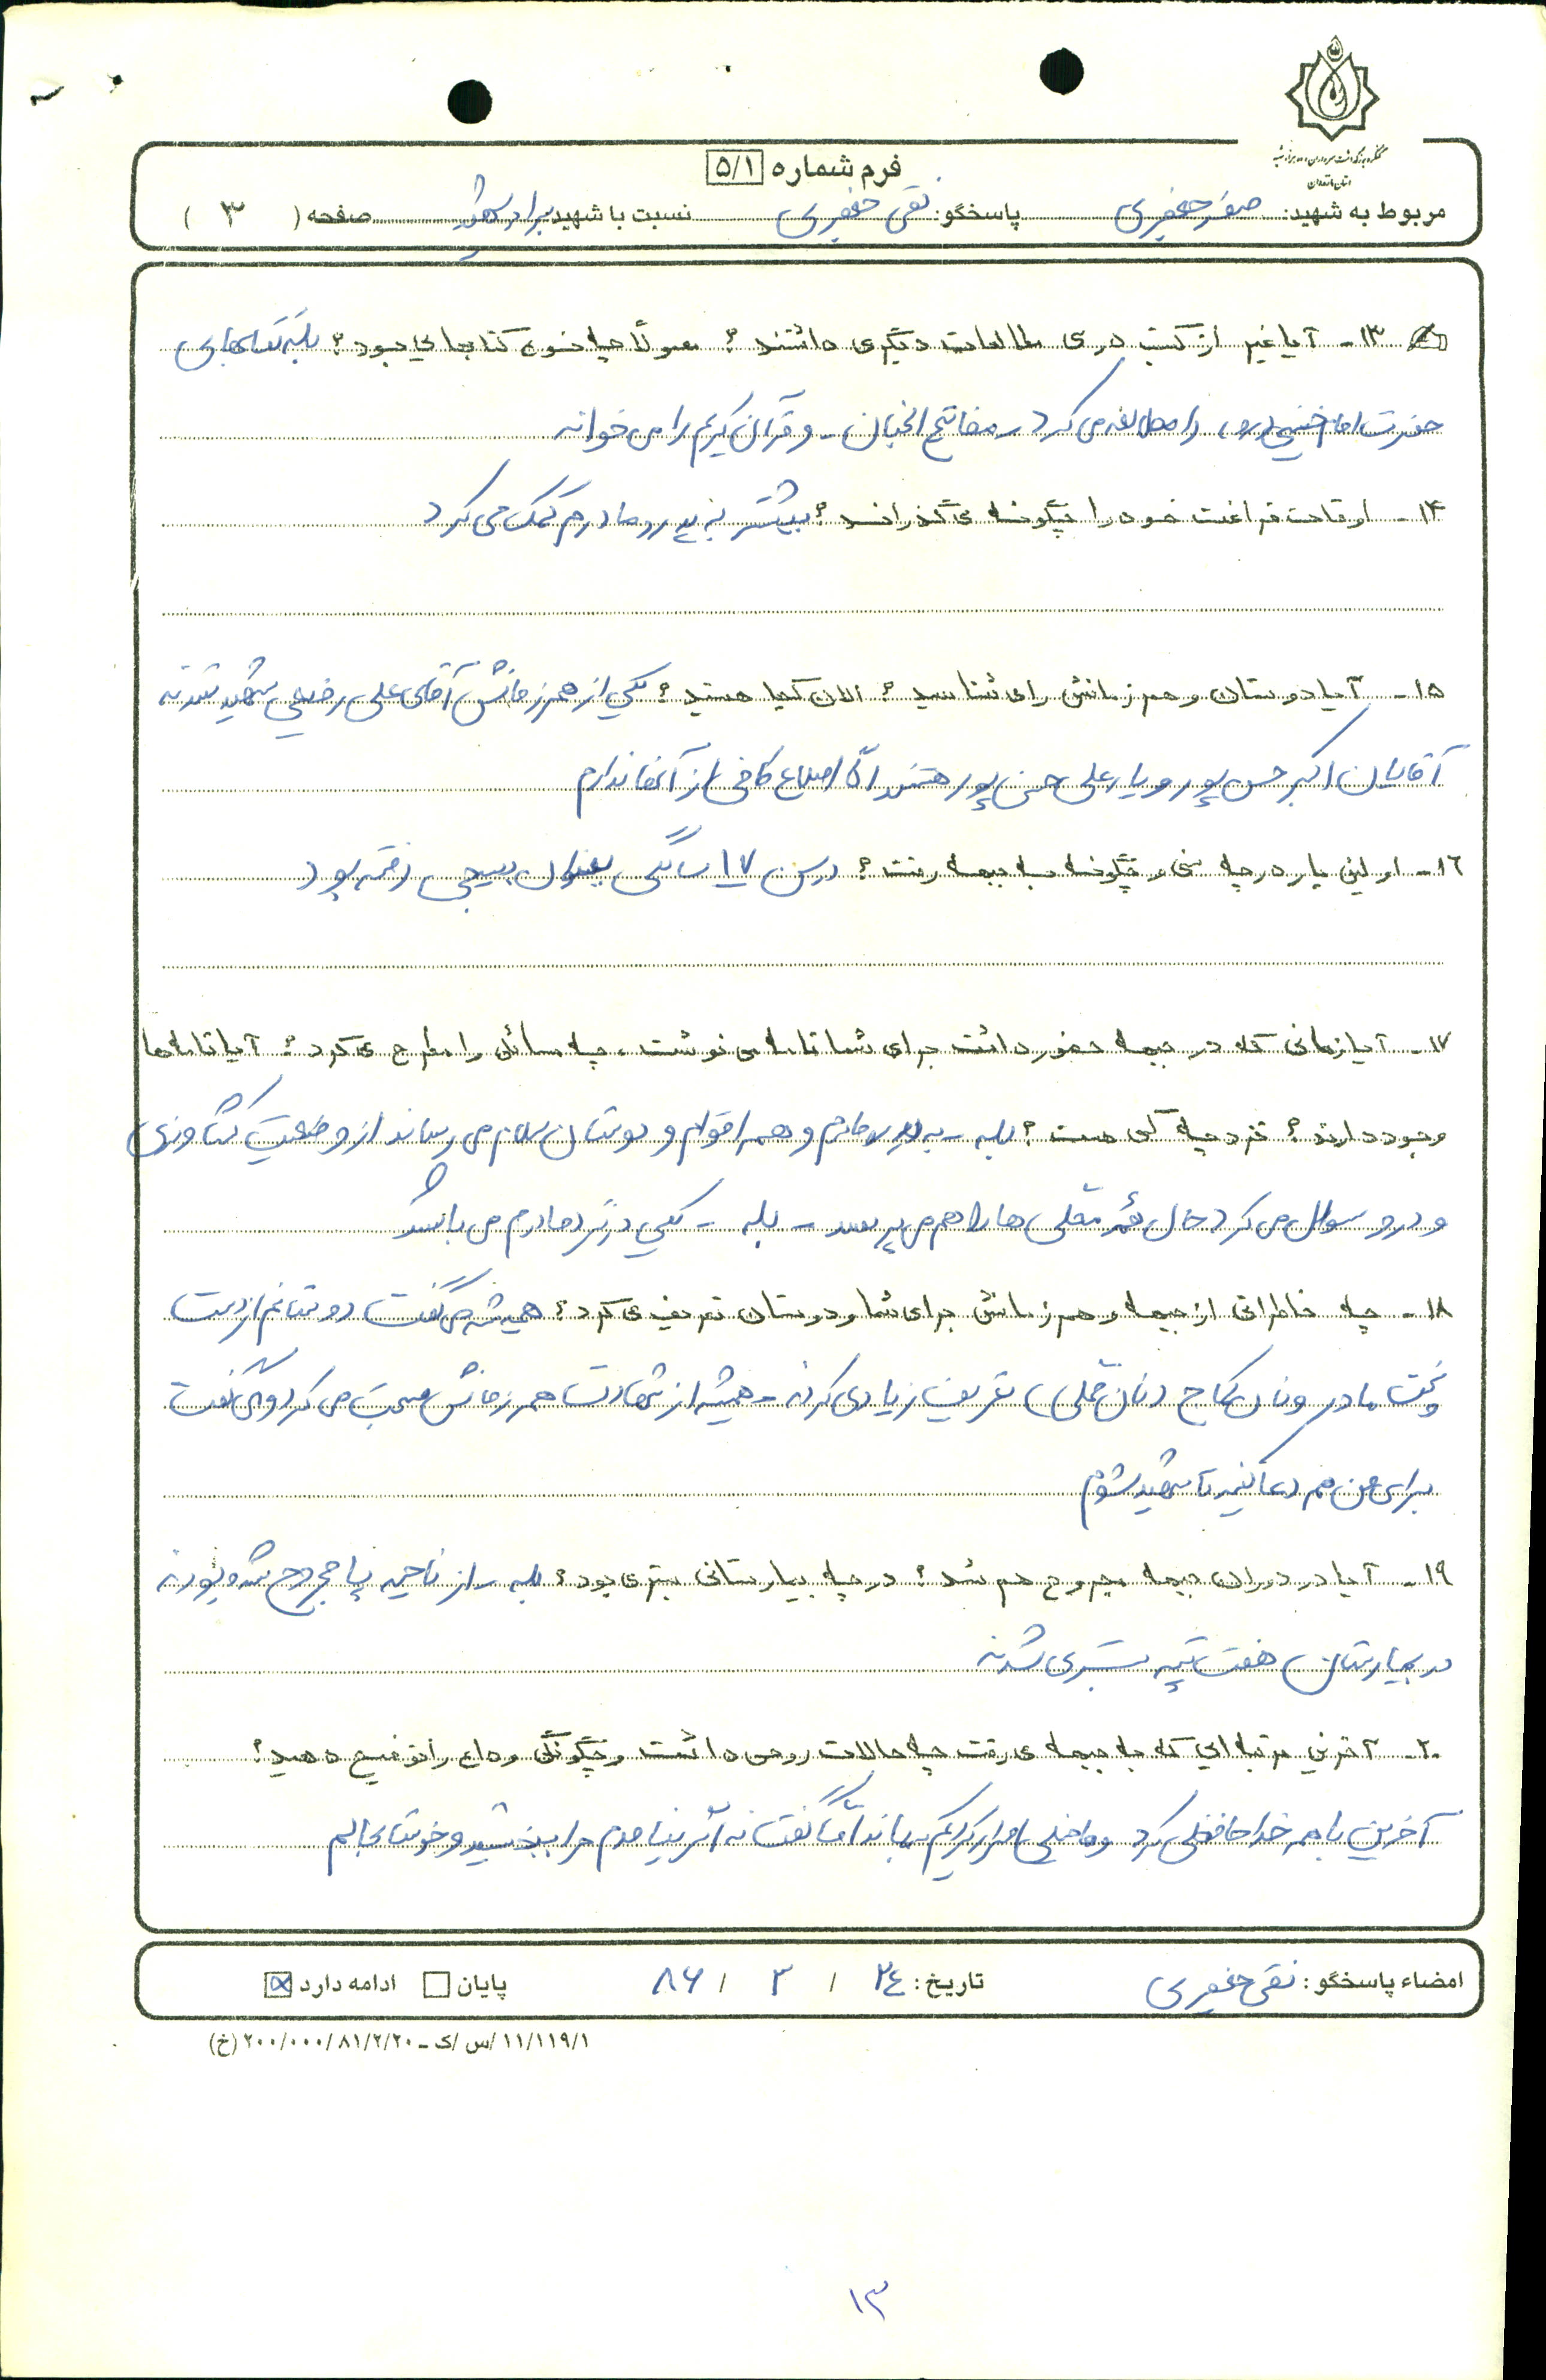 کنگره بزرگداشت سرداران و ده هزار شهید
استان مازندران
فرم شماره ۵/۱
مربوط به شهید: صفر جعفری پاسخگو: نقی جعفری نسبت با شهید برادر شهید صفحه ( ۳ )
۱۳- آیا غیر از کتب درسی مطالعات دیگری داشتند؟ معمولاً چه نوع کتابهایی بود؟ بله کتابهای
حضرت امام خمینی (ره) را مطالعه می کرد - مفاتیح الجنان - و قرآن کریم را می خواند
۱۴- اوقات فراغت خود را چگونه می گذراند؟ بیشتر به پدر و مادرم کمک می کرد
۱۵- آیا دوستان و همرزمانش را می شناسید؟ الان کجا هستند؟ یکی از همرزمانش آقای علی رضایی شهید شدند
آقایان اکبر حسن پور و یارعلی حسن پور هستند امّا اطلاع کافی از آنها ندارم
۱۶- اولین بار در چه سنی و چگونه به جبهه رفت؟ در سن ۱۷ سالگی بعنوان بسیجی رفته بود
۱۷- آیا زمانی که در جبهه حضور داشت برای شما نامه می نوشت، چه مسائلی را مطرح می کرد؟ آیا نامه ها
وجود دارند؟ نزد چه کسی هست؟ بله - به پدر مادرم و همه اقوام و دوستان سلام می رساند از وضعیت کشاورزی
و درو سوال می کرد حال همه محلی ها را هم می پرسد - بله - یکی در نزد مادرم می باشد
۱۸- چه خاطراتی از جبهه و همرزمانش برای شما و دوستان تعریف می کرد؟ همیشه می گفت دوستانم از دست
پخت مادر و نان کماج (نان محلی) تعریف زیادی کردند - همیشه از شهادت همرزمانش صحبت می کرد و می گفت
برای من هم دعا کنید تا شهید شوم
۱۹- آیا در دوران جبهه مجروح هم شد؟ در چه بیمارستانی بستری بود؟ بله - از ناحیه پا مجروح شده بودند
در بیمارستان هفت تپه بستری شدند
۲۰- آخرین مرتبه ایی که به جبهه می رفت چه حالات روحی داشت و چگونگی وداع را توضیح دهید؟
آخرین با همه خداحافظی کرد و ما خیلی اصرار کردیم بماند امّا گفت نه اگر نیامدم مرا ببخشید و خوشا بحالم
امضاء پاسخگو: نقی جعفری تاریخ: ۲۴ / ۳ / ۸۶ پایان ادامه دارد
۱۱/۱۱۹/۱/س/ک - ۲۰۰/۰۰۰/۸۱/۲/۲۰ (خ)
۱۳